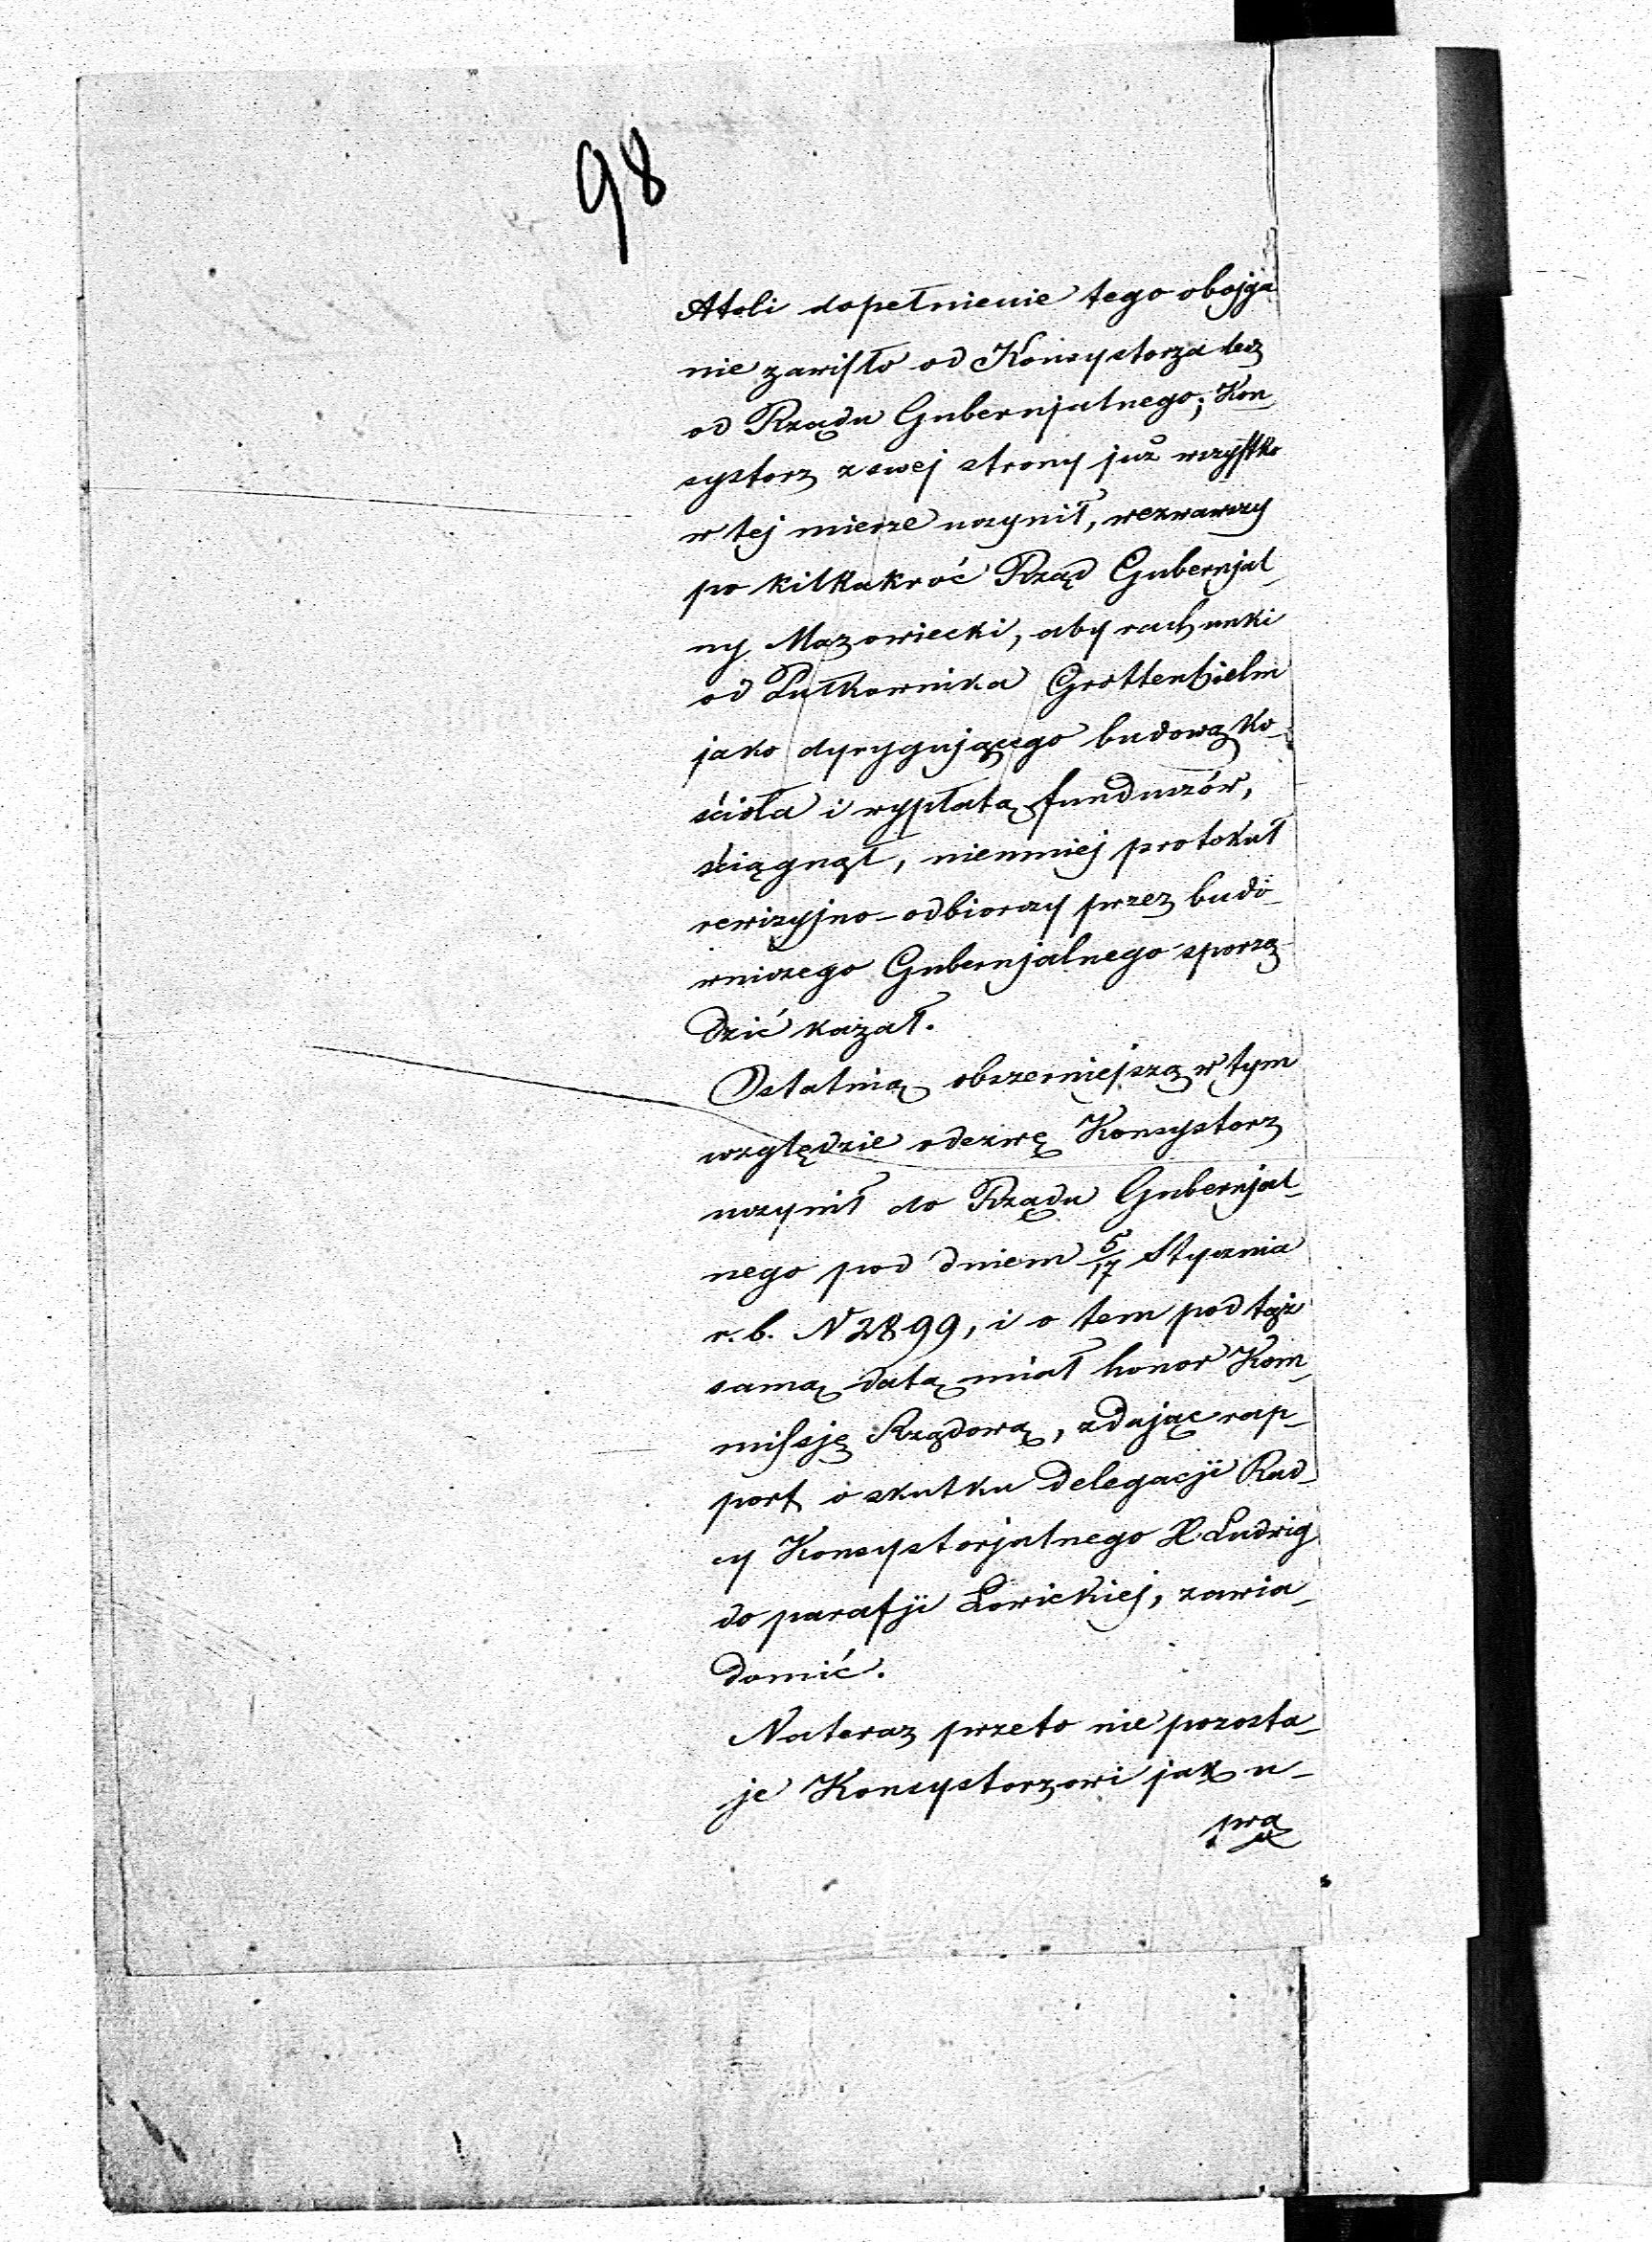 98
Atoli dopełnienie tego obojga
nie zawisło od Konsystorza lecz
od Rządu Gubernjalnego; Kon_
systorz z swej strony już wszystko
w tej mierze uczynił, wezwawszy
po kilkakroć Rząd Gubernjal_
ny Mazowiecki, aby rachunki
od Pułkownika Grottenhielm
jako dyrygującego budową ko_
ścioła i wypłatą funduszów,
ściągnął, niemniej protokuł
rewizyjno-odbiorczy przez budo_
wniczego Gubernjalnego sporzą_
dzić kazał.
Ostatnią obszerniejszą w tym
względzie odezwę Konsystorz
uczynił do Rządu Gubernjal_
nego pod dniem 5/17 Stycznia
r. b. N 2899, i o tem pod tąż
samą datą miał honor Kom_
missję Rządową, zdając rap_
port o skutku delegacji Rad_
cy Konsystorjalnego X. Ludwig
do parafji Łowickiej, zawia_
domić.
Nateraz przeto nie pozosta_
je Konsystorzowi jak u_
pra